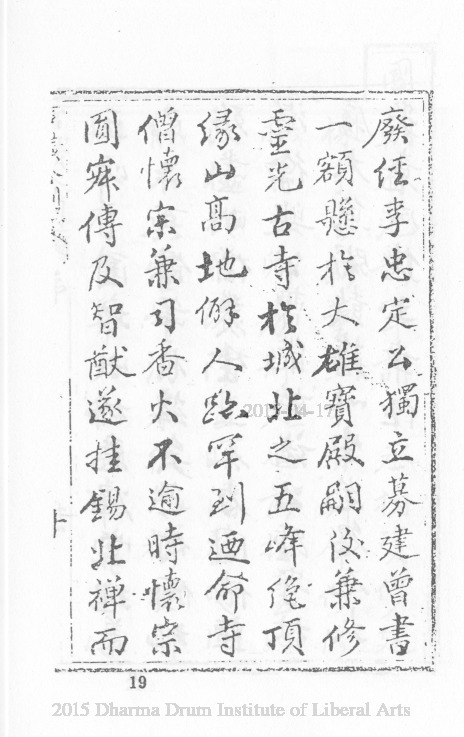 廢經李忠定公獨立募建曾書
一額懸於大雄寶殿嗣後兼修
靈光古寺於城北之五峰絕頂
緣山高地僻人跡罕到迺命寺
僧懷宗兼司香火不逾時懷宗
圓寂傳及智猷遂挂錫北禪而
19
2015 Dharma Drum Institute of Liberal Arts